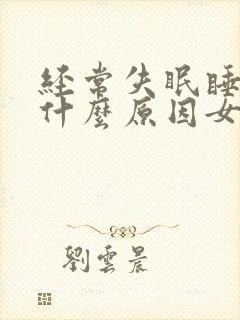 経常失眠睡
什麼原因女
劉雲晨